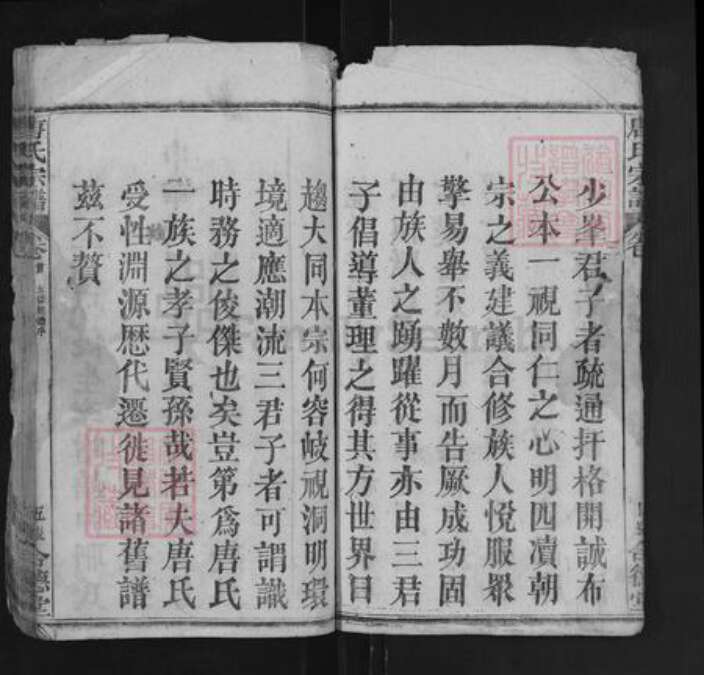 少峯君子者疏通扞格開誠布
公本一視同仁之心明四瀆朝
宗之義建議合修族人悅服衆
擎易舉不數月而告厥成功固
由族人之踴躍從事亦由三君
子倡導董理之得其方世界日
趨大同本宗何容岐視洞明環
境適應潮流三君子者可謂識
時務之俊傑也矣豈第爲唐氏
一族之孝子賢孫哉若夫唐氏
受性淵源歷代遷徙見諸舊譜
茲不贅
唐氏宗譜